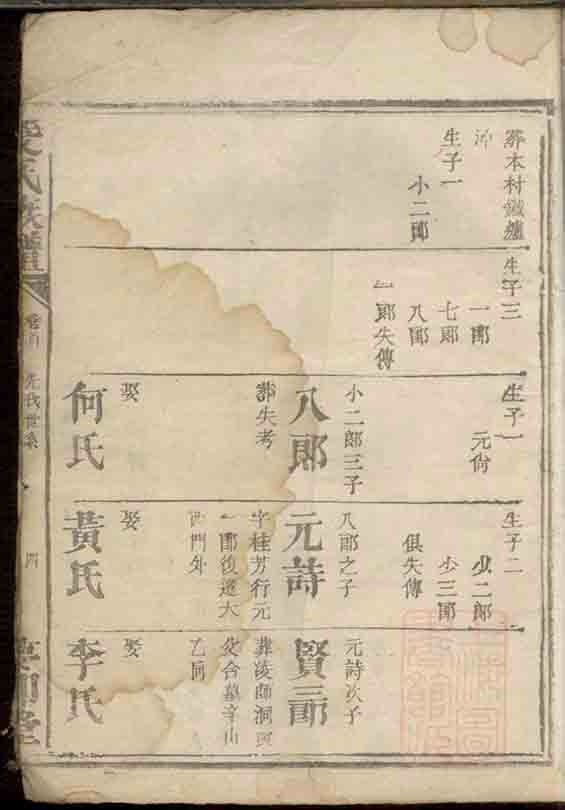 葬本村鐵爐
沖
生子一
小二郎
生子三
一郎
七郎
八郎
一郎失傳
生子一
元尙
小二郎三子
八郎
葬失考
娶
何氏
生子二
少二郎
少三郎
俱失傳
八郎之子
元詩
字桂芳行元
一郎後遷大
西門外
娶
黃氏
元詩次子
賢三郎
葬淩師洞
合墓辛山
乙向
娶
李氏
氏族譜
卷首
先代世系
四